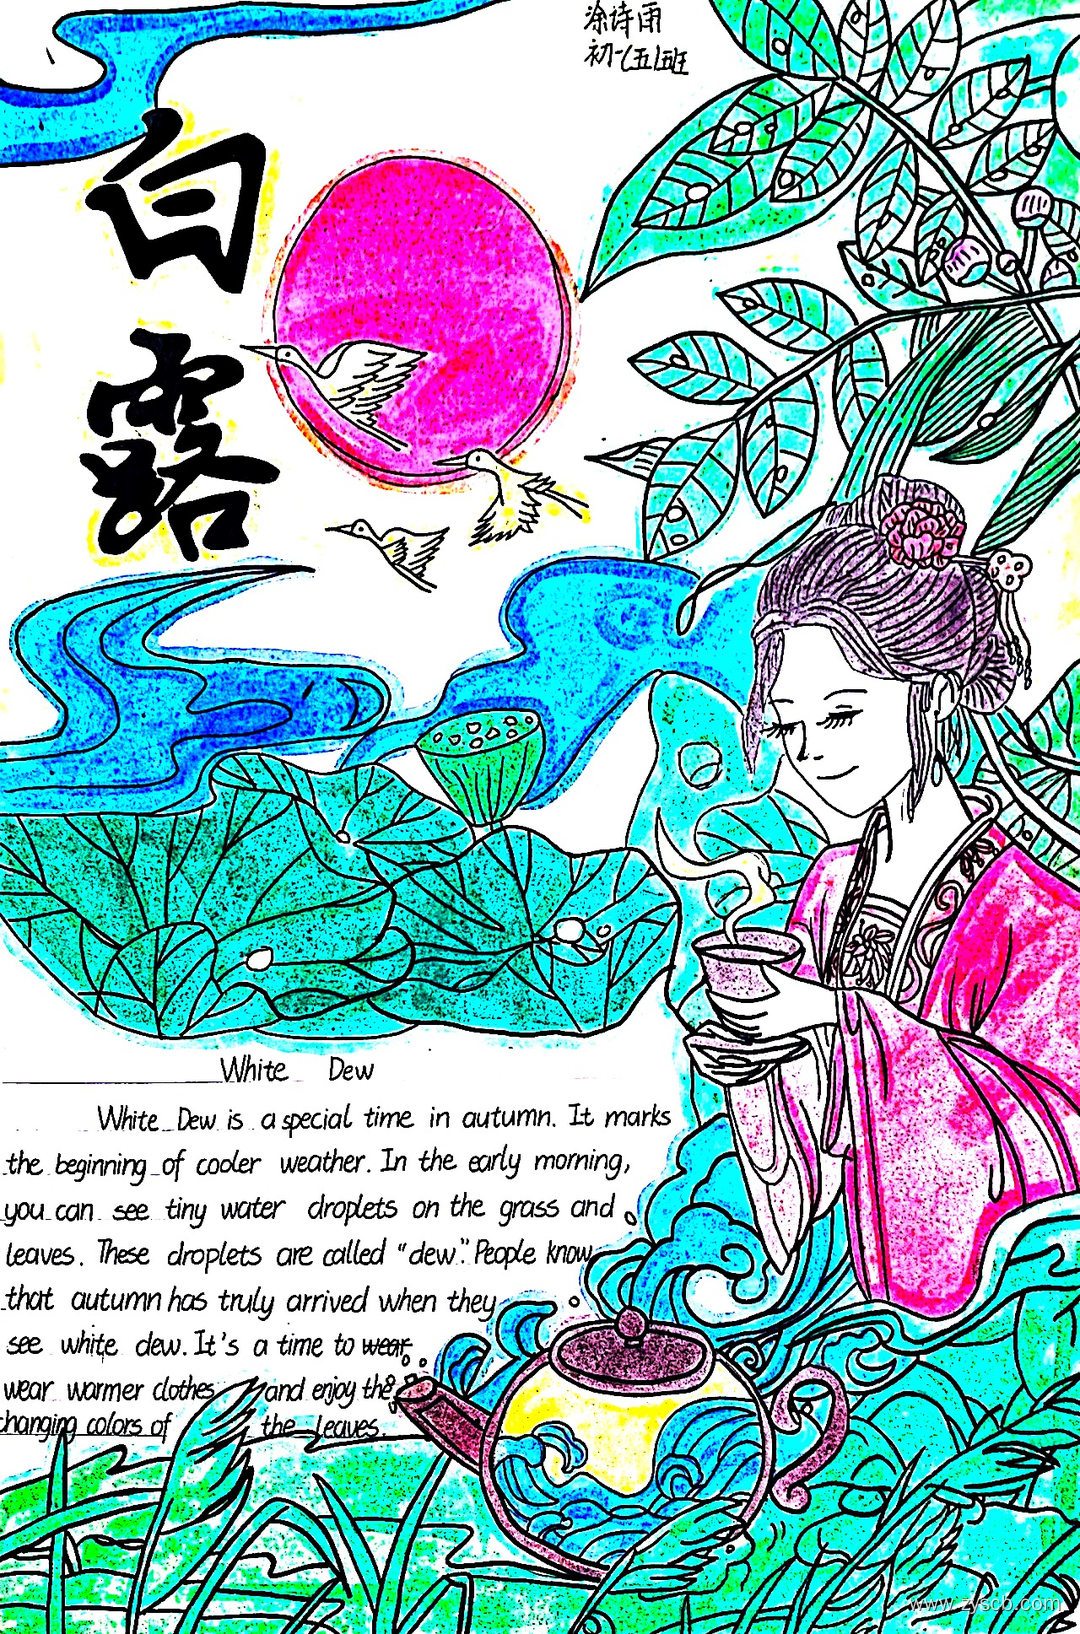 涂诗雨
初一(五)班
白露
White Dew
White Dew is a special time in autumn. It marks
the beginning of cooler weather. In the early morning,
you can see tiny water droplets on the grass and
leaves. These droplets are called "dew". People know
that autumn has truly arrived when they
see white dew. It's a time to wear
wear warmer clothes and enjoy the
changing colors of the leaves.
www.zyscb.com